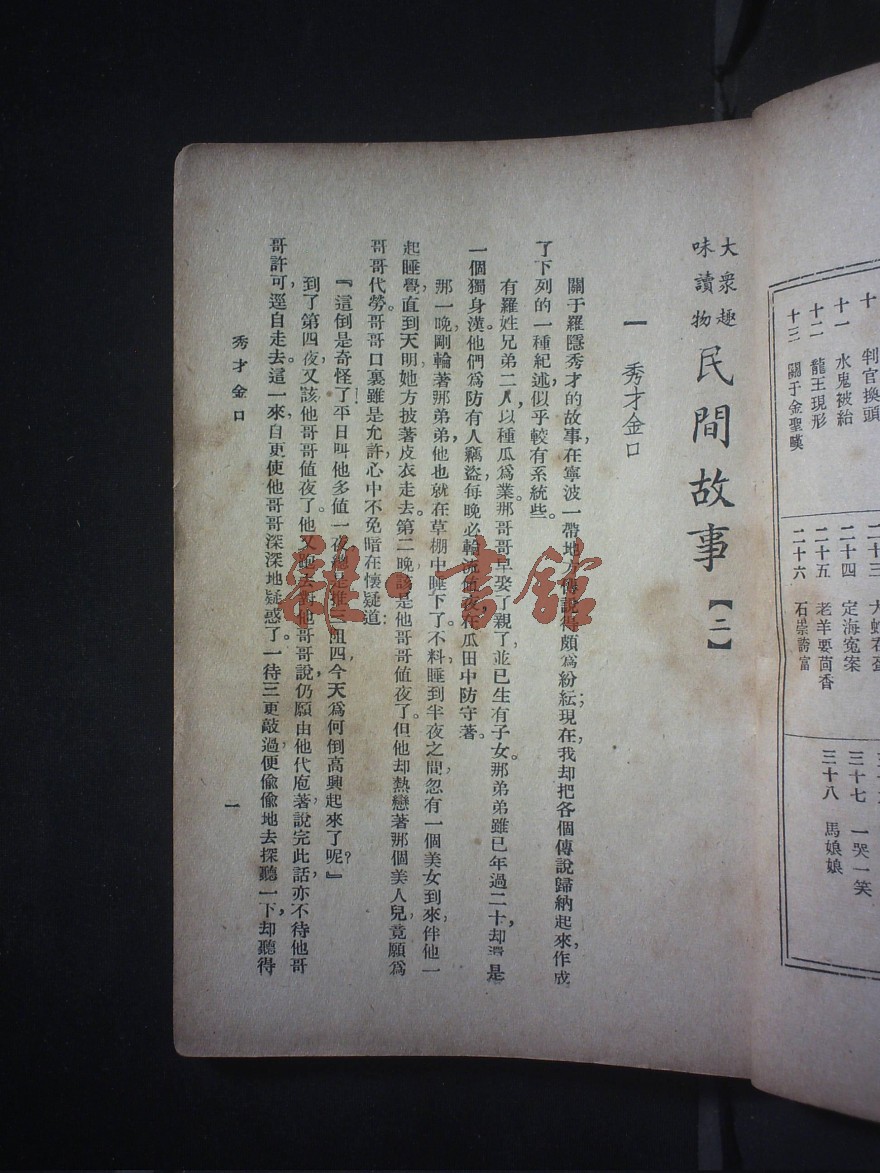 十
判官換頭
十一　水鬼被紿
十二　龍王現形
十三　關于金聖嘆
二十三
二十四　定海寃案
二十五　老羊要茴香
二十六　石崇誇富
三十七　一哭一笑
三十八　馬娘娘
大衆趣
味讀物
民間故事【二】
一　秀才金口
關于羅隱秀才的故事，在寧波一帶地方傳說得頗爲紛紜；現在，我却把各個傳說歸納起來，作成
了下列的一種紀述，似乎較有系統些。
有羅姓兄弟二人，以種瓜爲業。那哥哥早娶了親了，並已生有子女。那弟弟雖已年過二十，却還是
一個獨身漢。他們爲防有人竊盜，每晚必輪流值夜，在瓜田中防守著。
那一晚，剛輪著那弟弟，他也就在草棚中睡下了。不料睡到半夜之間，忽有一個美女到來，伴他一
起睡覺，直到天明，她方披著皮衣走去。第二晚，該是他哥哥值夜了。但他却熱戀著那個美人兒，竟願爲
哥哥代勞。哥哥口裏雖是允許，心中不免暗在懷疑道：
『這倒是奇怪了！平日叫他多值一夜，總是推三阻四，今天爲何倒高興起來了呢？』
到了第四夜，又該他哥哥值夜了。他又跑去對他哥哥說，仍願由他代庖著，說完此話，亦不待他哥
哥許可，逕自走去。這一來，自更使他哥哥深深地疑惑了。一待三更敲過，便偸偸地去探聽一下，却聽得
秀才金口
一
雜·書館